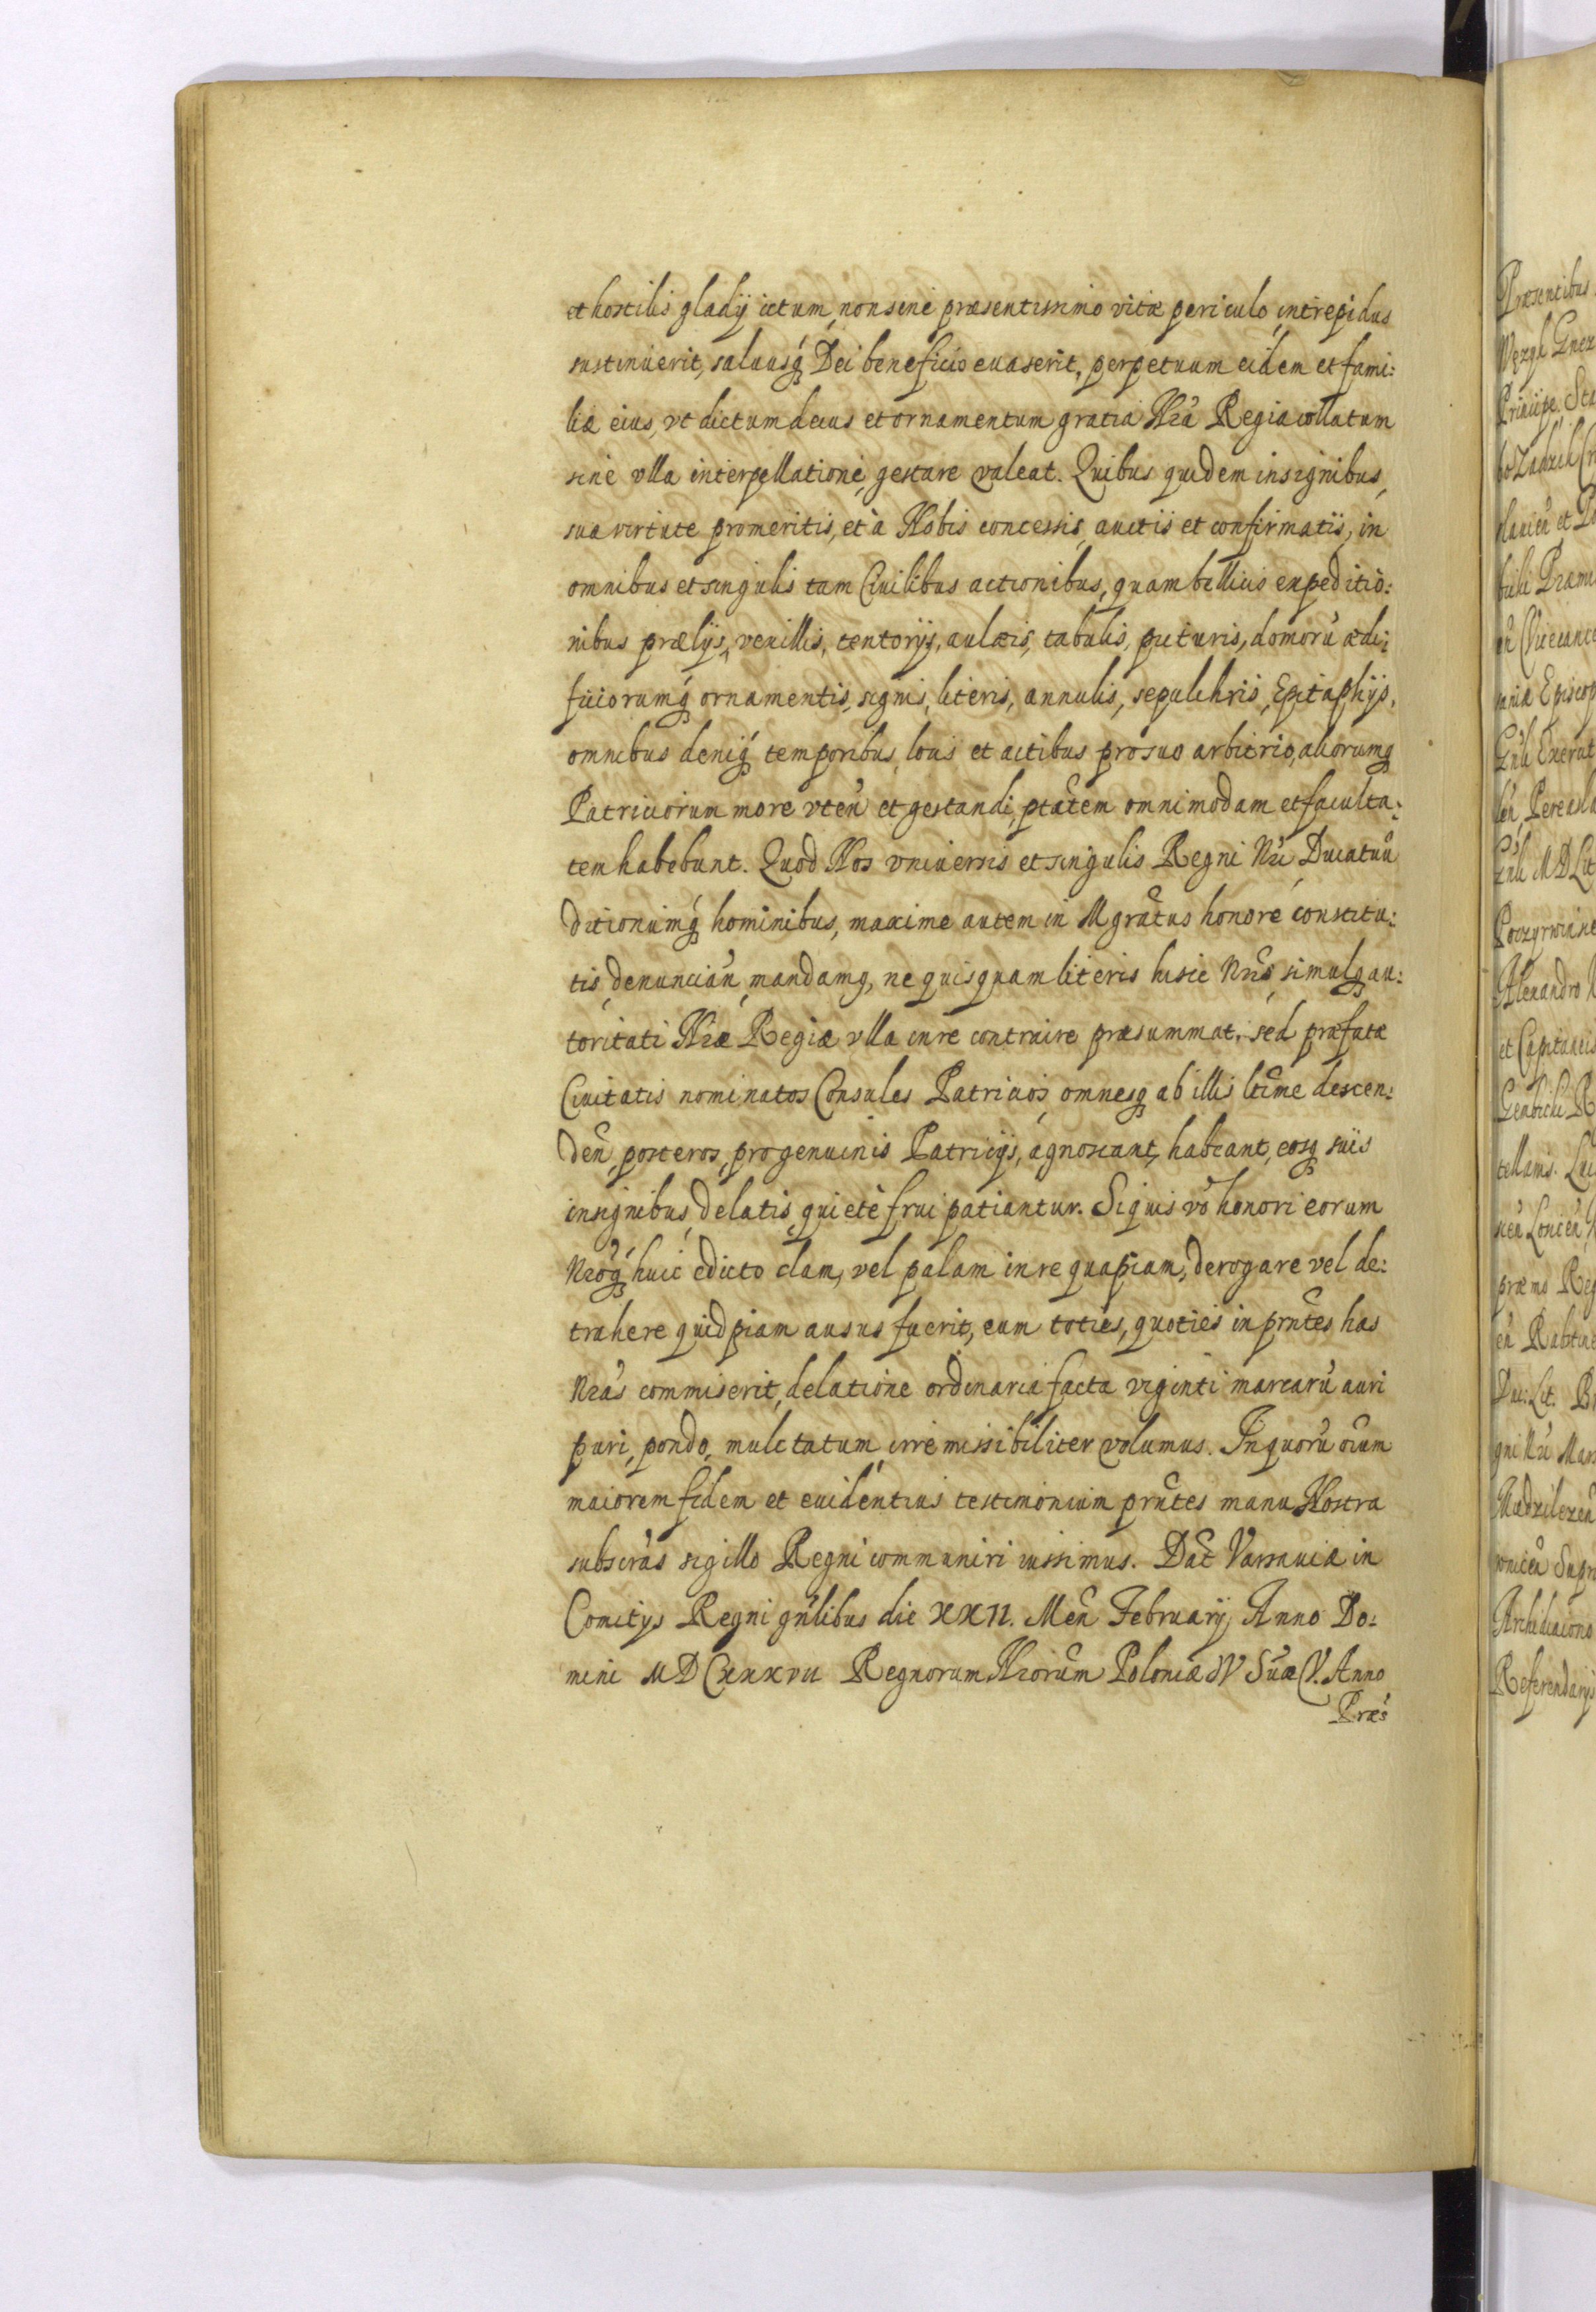 et hostilis gladij ictum, non sine præsentissimo vitæ periculo, intrepidus
sustinuerit, saluusq́ Dei beneficio euaserit, perpetuum eidem et fami:
liæ eius, vt dictum decus et ornamentum gratia Nrā Regia collatum
sine vlla interpellatione, gestare valeat. Quibus quidem insignibus,
sua virtute promeritis, et à Nobis concessis, auctis et confirmatis, in
omnibus et singulis tam Ciuilibus actionibus, quam bellicis expeditio:
nibus prælijs, vexillis, tentorijs, aulæis, tabulis, picturis, domorū ædi:
ficiorumq́ ornamentis, signis, literis, annulis, sepulchris, Epitaphijs,
omnibus deniq́ temporibus, locis et actibus pro suo arbitrio, aliorumq
Patriciorum more vteñ et gestandi, ptātem omnimodam et faculta:
tem habebunt. Quod Nos vniuersis et singulis Regni Nri, Ducatuū
Ditionumq́ hominibus, maxime autem in Mgrātus honore constitu:
tis, denunciañ, mandamq, ne quisquam literis hisce Nris, simulq au:
toritati Nræ Regiæ vlla in re contraire præsummat, sed præfatæ
Ciuitatis nominatos Consules Patricios, omnesq ab illis ltīme descen:
deñ, posteros, pro genuinis Patricijs, agnoscant, habeant, eosq suis
insignibus, delatis, quiete frui patiantur. Siquis vō honori eorum
Nroq́ huic edicto clam, vel palam in re quapiam, derogare vel de:
trahere quidpiam ausus fuerit, eum toties, quoties in prntes has
Nrās commiserit, delatione ordinaria facta viginti marcarū auri
puri, pondo, mulctatum irremissibiliter volumus. In quorū oīum
maiorem fidem et euidentius testimonium prntes manu Nostra
subscrās sigillo Regni communiri iussimus. Dat Varsauiæ in
Comitijs Regni gnlibus die XXII. Meñ Februarij, Anno Do:
mini MDCXXXVII Regnorum Nrorum Poloniæ IV Suæ V. Anno
Præs
Præsentibus
Principe. Sta
Alexandro
et Capitaneis
Archidiacono
Referendarijs